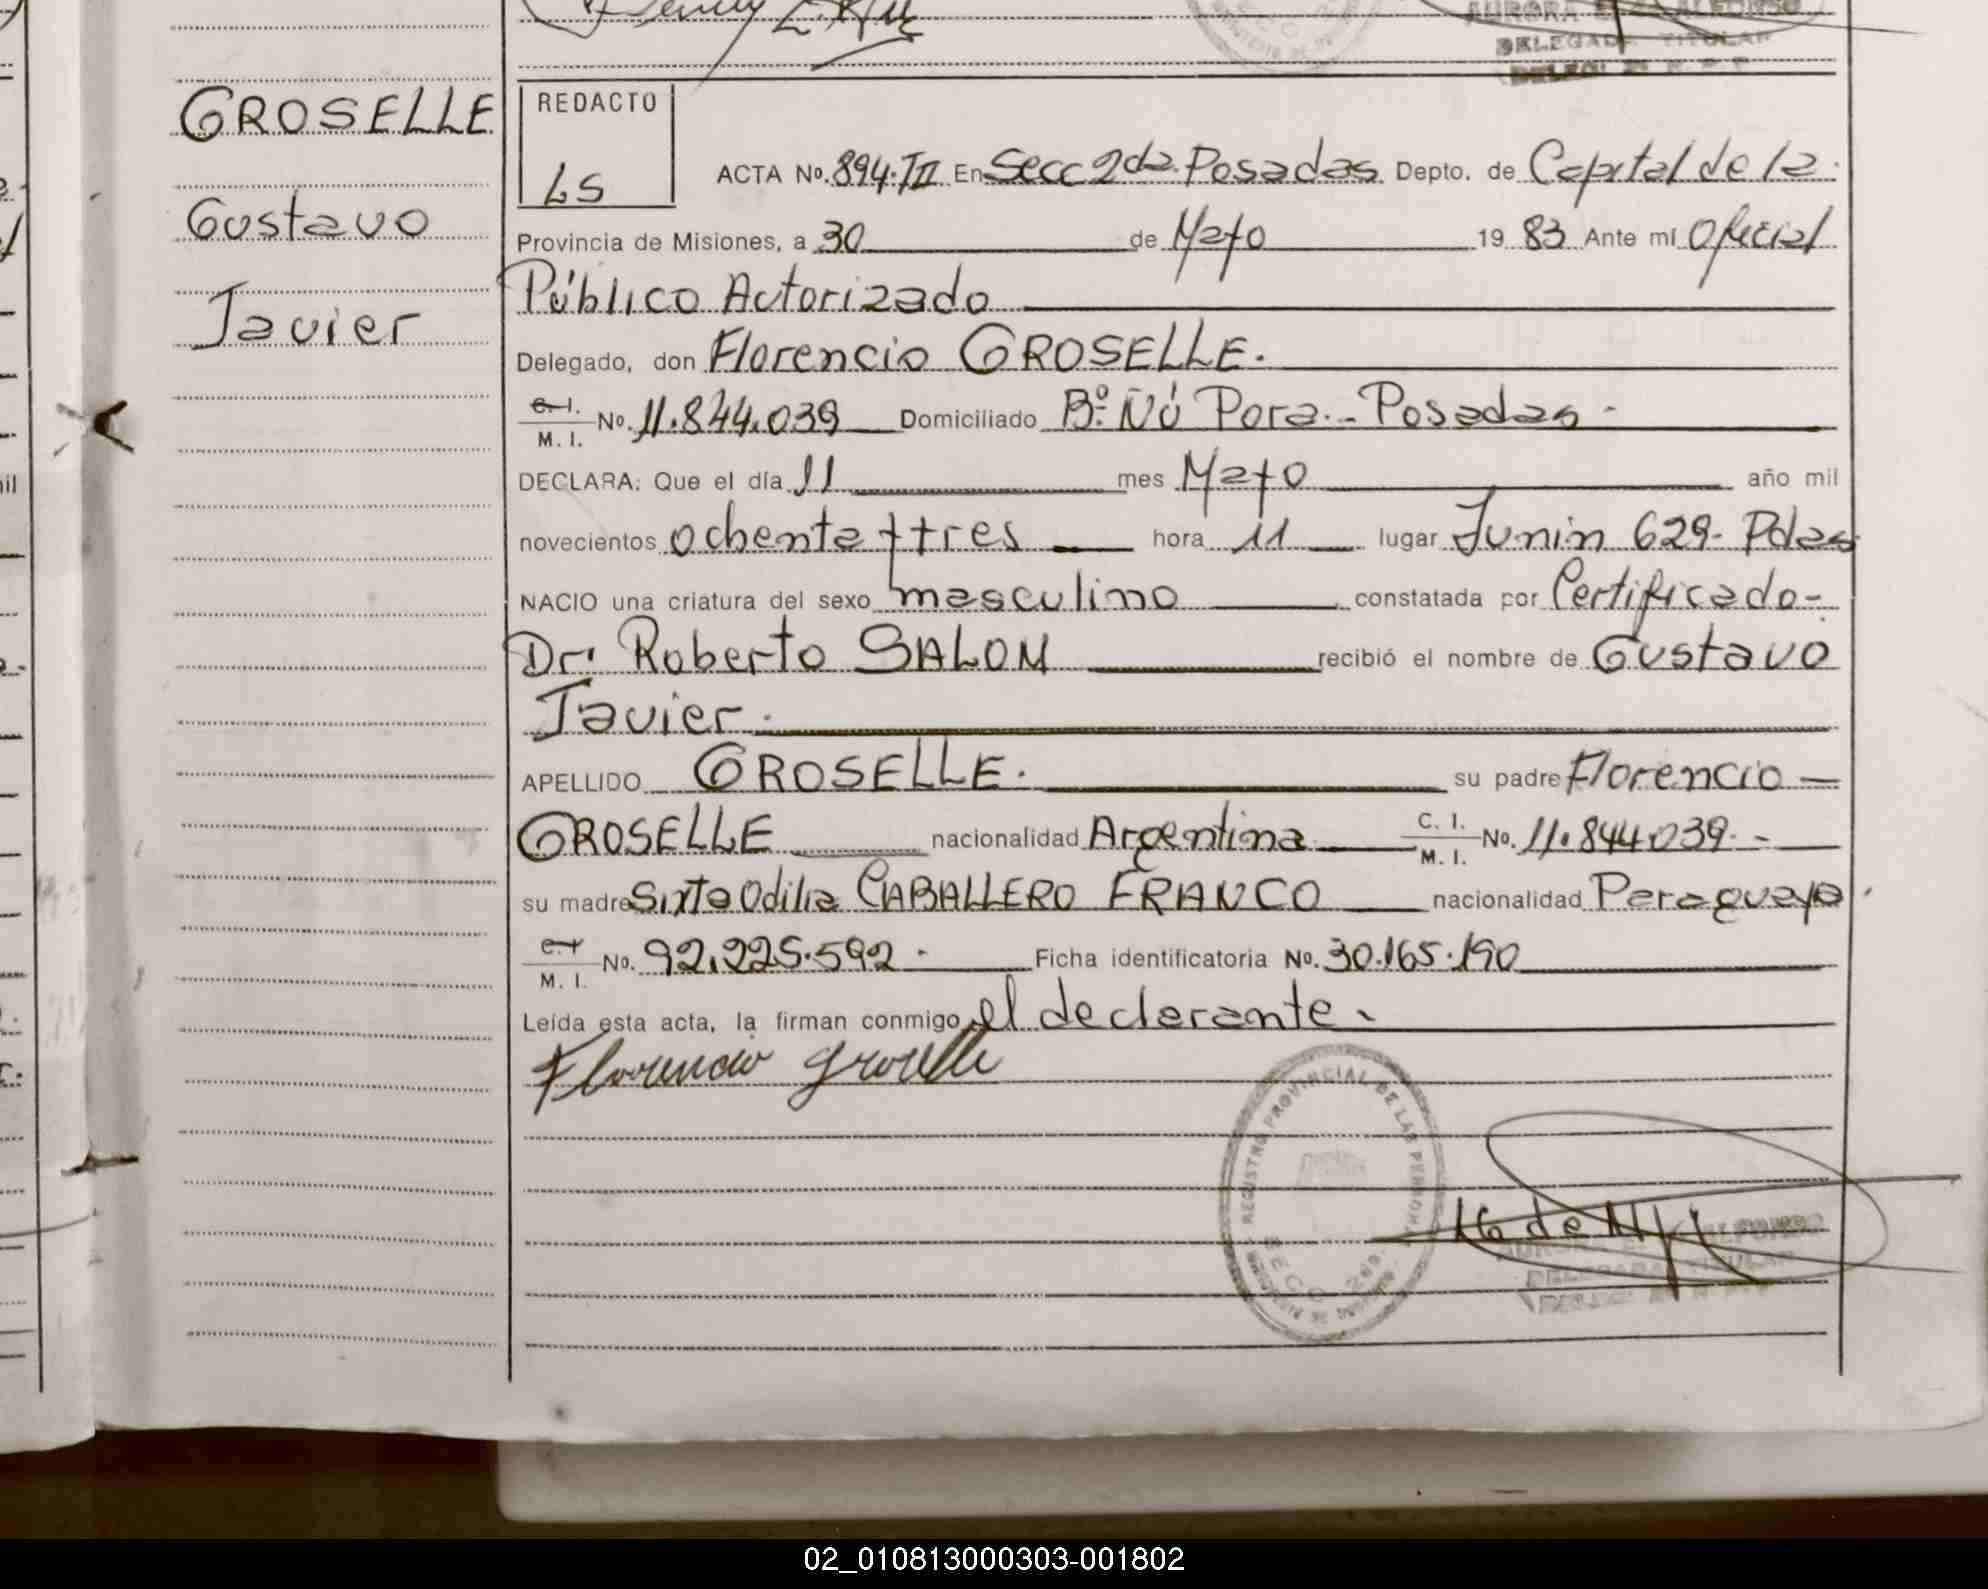 AURORA E. ALFONSO
DELEGADA TITULAR
GROSELLE
Gustavo
Javier
REDACTO
LS
ACTA No. 894·TII En Secc 2da. Posadas Depto. de Capital de la
Provincia de Misiones, a 30 de Mayo 19 83 Ante mí Oficial
Público Autorizado
Delegado, don Florencio GROSELLE.
C. I.
M. I. No. 11.844.039 Domiciliado Bº. Ñú Pora.- Posadas -
DECLARA: Que el día 11 mes Mayo año mil
novecientos ochenta y tres hora 11 lugar Junin 629- Pdas
NACIO una criatura del sexo masculino constatada por Certificado-
Dr. Roberto SALOM recibió el nombre de Gustavo
Javier.
APELLIDO GROSELLE. su padre Florencio
GROSELLE nacionalidad Argentina C. I.
M. I. No. 11.844.039.-
su madre Sixta Odilia CABALLERO FRANCO nacionalidad Paraguaya.
C. I.
M. I. No. 92.225.592.- Ficha identificatoria No. 30.165.190
Leída esta acta, la firman conmigo, el declarante.-
Florencio Groselle
REGISTRO PROVINCIAL DE LAS PERSONAS
SECC. 2da.
ALFONSO
DELEGADA TITULAR
02_010813000303-001802